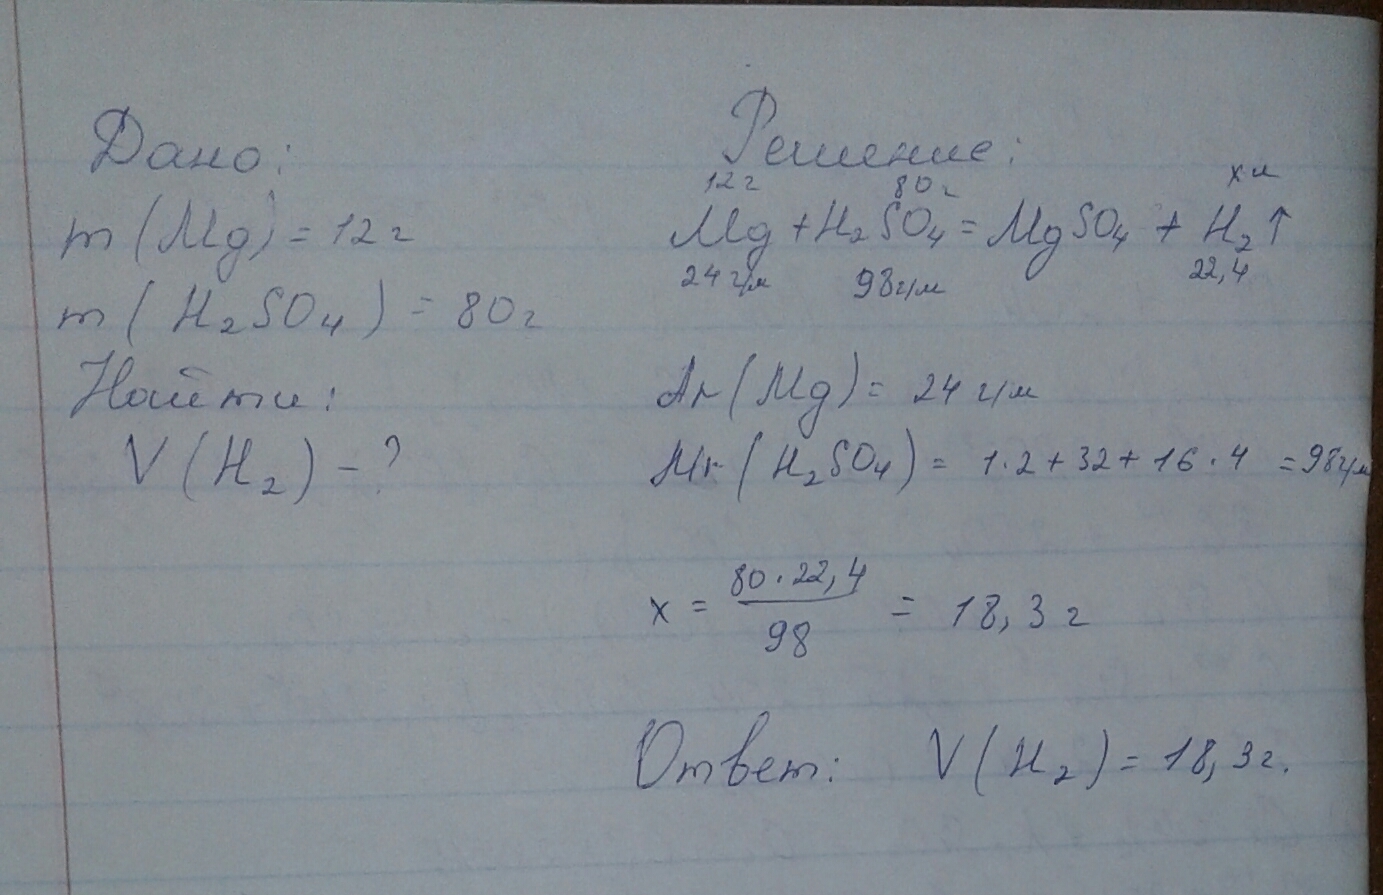 Дано:
m(Mg) = 12 г
m(H₂SO₄) = 80 г
Найти:
V(H₂) - ?
Решение:
12 г 80 г x л
Mg + H₂SO₄ = MgSO₄ + H₂↑
24 г/м 98 г/м 22,4
Ar(Mg) = 24 г/м
Mr(H₂SO₄) = 1·2+32+16·4 = 98 г/м
x = 80·22,4 / 98 = 18,3 г
Ответ: V(H₂) = 18,3 г.